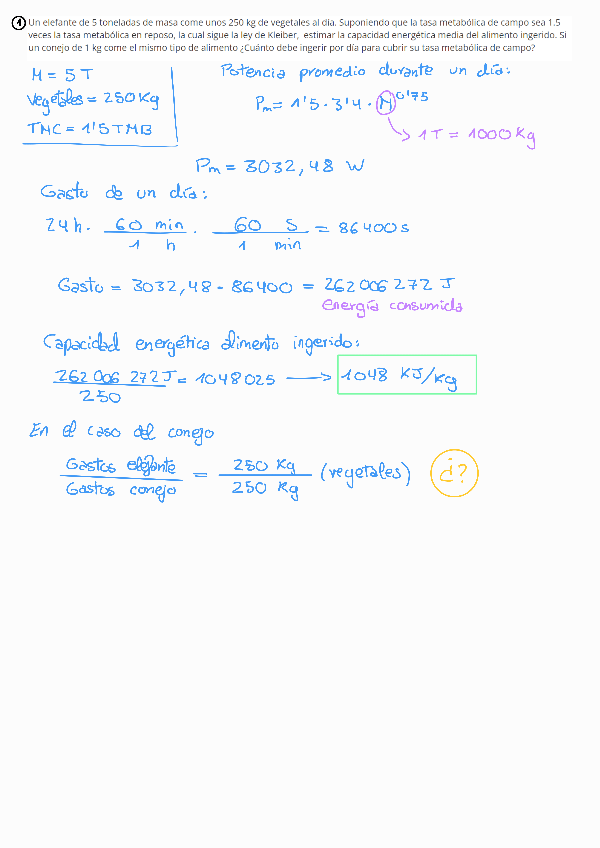 1 Un elefante de 5 toneladas de masa come unos 250 kg de vegetales al día. Suponiendo que la tasa metabólica de campo sea 1.5
veces la tasa metabólica en reposo, la cual sigue la ley de Kleiber, estimar la capacidad energética media del alimento ingerido. Si
un conejo de 1 kg come el mismo tipo de alimento ¿Cuánto debe ingerir por día para cubrir su tasa metabólica de campo?
M = 5 T
Vegetales = 250 Kg
TMC = 1'5 TMB
Potencia promedio durante un día:
Pm = 1'5 · 3'4 · M^0'75
1 T = 1000 Kg
Pm = 3032,48 W
Gasto de un día:
24 h · 60 min / 1 h · 60 s / 1 min = 86400 s
Gasto = 3032,48 · 86400 = 262 006 272 J
Energía consumida
Capacidad energética alimento ingerido:
262 006 272 J / 250 = 1048025 → 1048 KJ/kg
En el caso del conejo
Gastos elefante / Gastos conejo = 250 Kg / 250 Kg (vegetales) ¿?